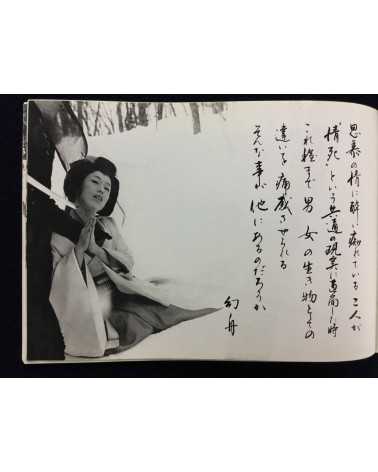 思慕の情に酔い痴れている二人が
"情死"という共通の現実に直面した時
これ程まで男、女の生き物としての
違いを痛感させられる
そんな事が他にあるのだろうか
幻舟